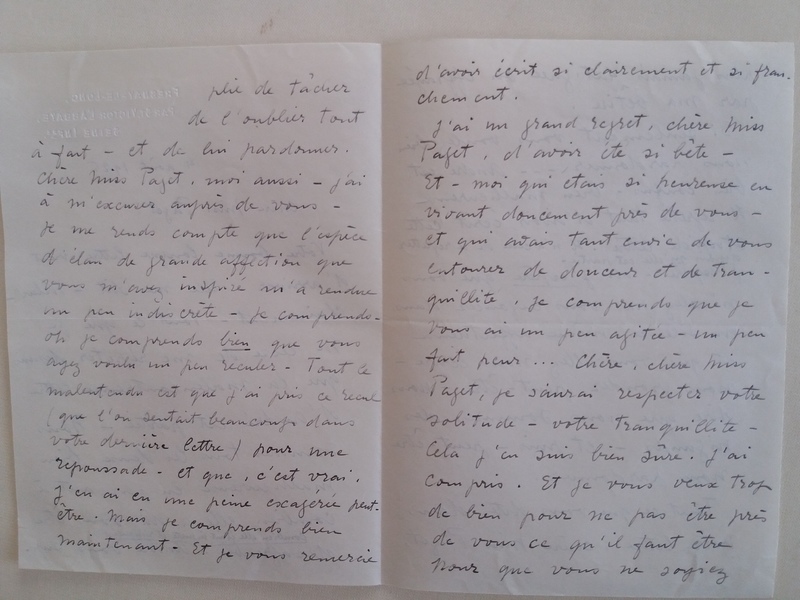 plie de tâcher
de l'oublier tout
à fait - et de lui pardonner.
Chère Miss Paget, moi aussi - j'ai
à m'excuser auprès de vous -
Je me rends compte que l'espèce
d'élan de grande affection que
vous m'avez inspiré m'a rendue
un peu indiscrète - je comprends -
oh je comprends bien que vous
ayez voulu un peu reculer - Tout le
malentendu est que j'ai pris ce recul
(que l'on sentait beaucoup dans
votre dernière lettre) pour une
repoussade - et que, c'est vrai,
j'en ai eu une peine exagérée peut-
être. Mais je comprends bien
maintenant - Et je vous remercie
d'avoir écrit si clairement et si fran-
chement.
J'ai un grand regret, chère Miss
Paget, d'avoir été si bête -
Et - moi qui étais si heureuse en
vivant doucement près de vous -
et qui avais tant envie de vous
entourer de douceur et de tran-
quillité, je comprends que je
vous ai un peu agitée - un peu
fait peur... Chère, chère Miss
Paget, je saurai respecter votre
solitude - votre tranquillité -
Cela j'en suis bien sûre. J'ai
compris. Et je vous veux trop
de bien pour ne pas être près
de vous ce qu'il faut être
pour que vous ne soyiez